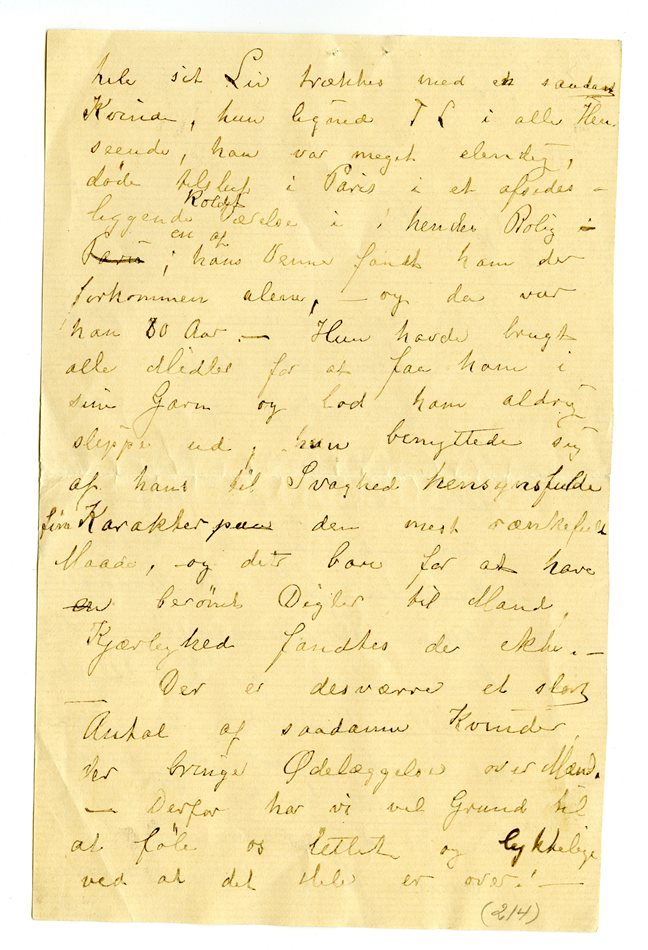 hele sit Liv trækkes med en saadant
Kvinde, hun lignede T L i alle Hen-
seende, han var meget elendig,
døde tilslut i Paris i et afsides-
liggende Koldt Værelse i hendes Bolig i
Paris; en af hans Venne fandt ham der
forkommen alene, — og da var
han 80 Aar. — Hun havde brugt
alle Midler for at faa ham i
sine Garn og lod ham aldrig
slippe ud, hun benyttede sig
af hans til Svaghed hensynsfulde
fine Karakter paa den mest rænkefulde
Maade, og det bare for at have
en berømt Digter til Mand,
Kjærlighed fandtes der ikke. —
— Der er desværre et stort
Antal af saadanne Kvinder,
der bringe Ødelæggelse over Mænd.
— Derfor har vi vel Grund til
at føle os lettet og lykkelige
ved at det Hele er over! —
(214)